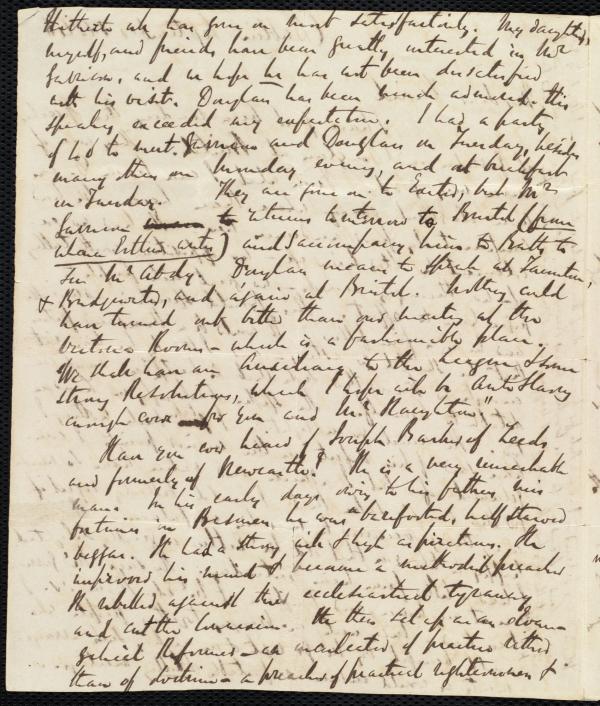 Hitherto all has gone on most satisfactorily. My daughter,
myself, and friends have been greatly interested in Mr
Garrison, and we hope he has not been dissatisfied
with his visit. Douglass has been much admired - this
speaking exceeded my expectation. I had a party
of 40 to meet Garrison and Douglass on Tuesday, besides
many others on Monday evening, and at breakfast
on Tuesday. They are gone on to Exeter, but Mr
Garrison to returns tomorrow to Bristol (from
whence Esthlin writes) and I accompany him to Bath to
see Mr Abdy. Douglass means to speak at Taunton,
& Bridgewater, and again at Bristol. Nothing could
have turned out better than our meeting at the
Victoria Rooms - which is a fashionable place.
We shall have an Auxiliary to the League & some
strong Resolutions, which I hope will be AntiSlavery
enough even for you and Mr Haughton."
Have you ever heard of Joseph Barker of Leeds
and formerly of Newcastle? He is a very remarkable
man. In his early days owing to his fathers mis
fortunes in Business he was a barefooted, half starved
beggar. He had a strong will & high aspirations. He
improved his mind & became a methodist preacher
He rebelled against their ecclesiastical tyranny
and cut the connexion. He then set up as an evan-
gelical Reformer - as a neglecter of practice rather
than of doctrine - a preacher of practical righteousness &